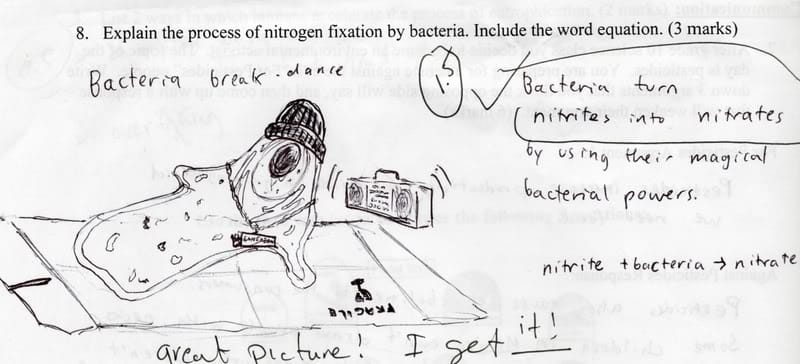 8. Explain the process of nitrogen fixation by bacteria. Include the word equation. (3 marks)
Bacteria break-dance
Bacteria turn
nitrites into nitrates
by using their magical
bacterial powers.
nitrite + bacteria → nitrate
FRAGILE
great picture! I get it!